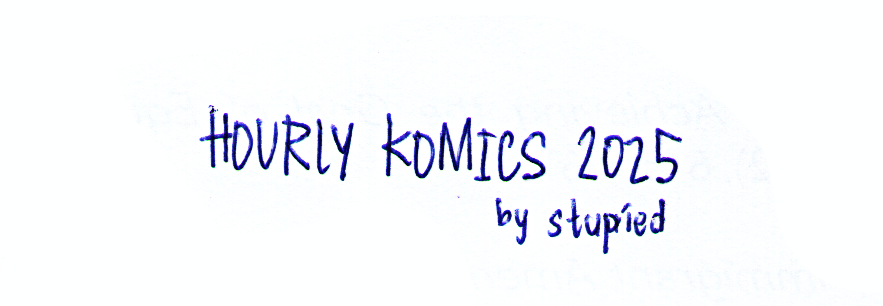 HOURLY KOMICS 2025
by stupied